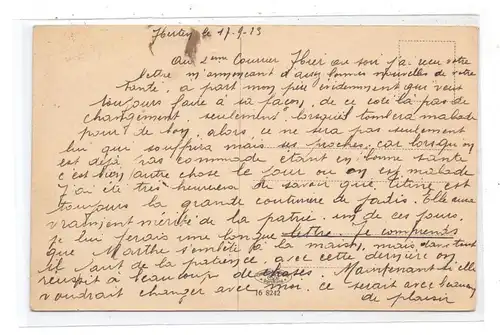 Hierlen le 17-9-13
Au 2eme Courrier Hier au soir j'ai reçu votre
lettre m'annonçant d'aussi bonnes nouvelles de votre
santé, a part mon père évidemment qui veut
toujours faire à sa façon, de ce coté la pas de
changement, seulement lorsqu'il tombera malade
pour de bon, alors, ce ne sera pas seulement
lui qui souffrira mais ses proches, car lorsqu'on
est déjà pas commode étant en bonne santé
c'est bien autre chose le jour ou on est malade
J'ai été très heureuse de savoir que Titine est
toujours la grande couturière de Paris. Elle aura
vraiment mérité de la patrie. un de ces jours
je lui ferais une longue lettre. Je comprends
que Marthe s'embête à la maison, mais dans tout
il faut de la patience, avec cette dernière on
réussit à beaucoup de choses. Maintenant si elle
voudrait changer avec moi, ce serait avec beaucoup
de plaisir
16 8242